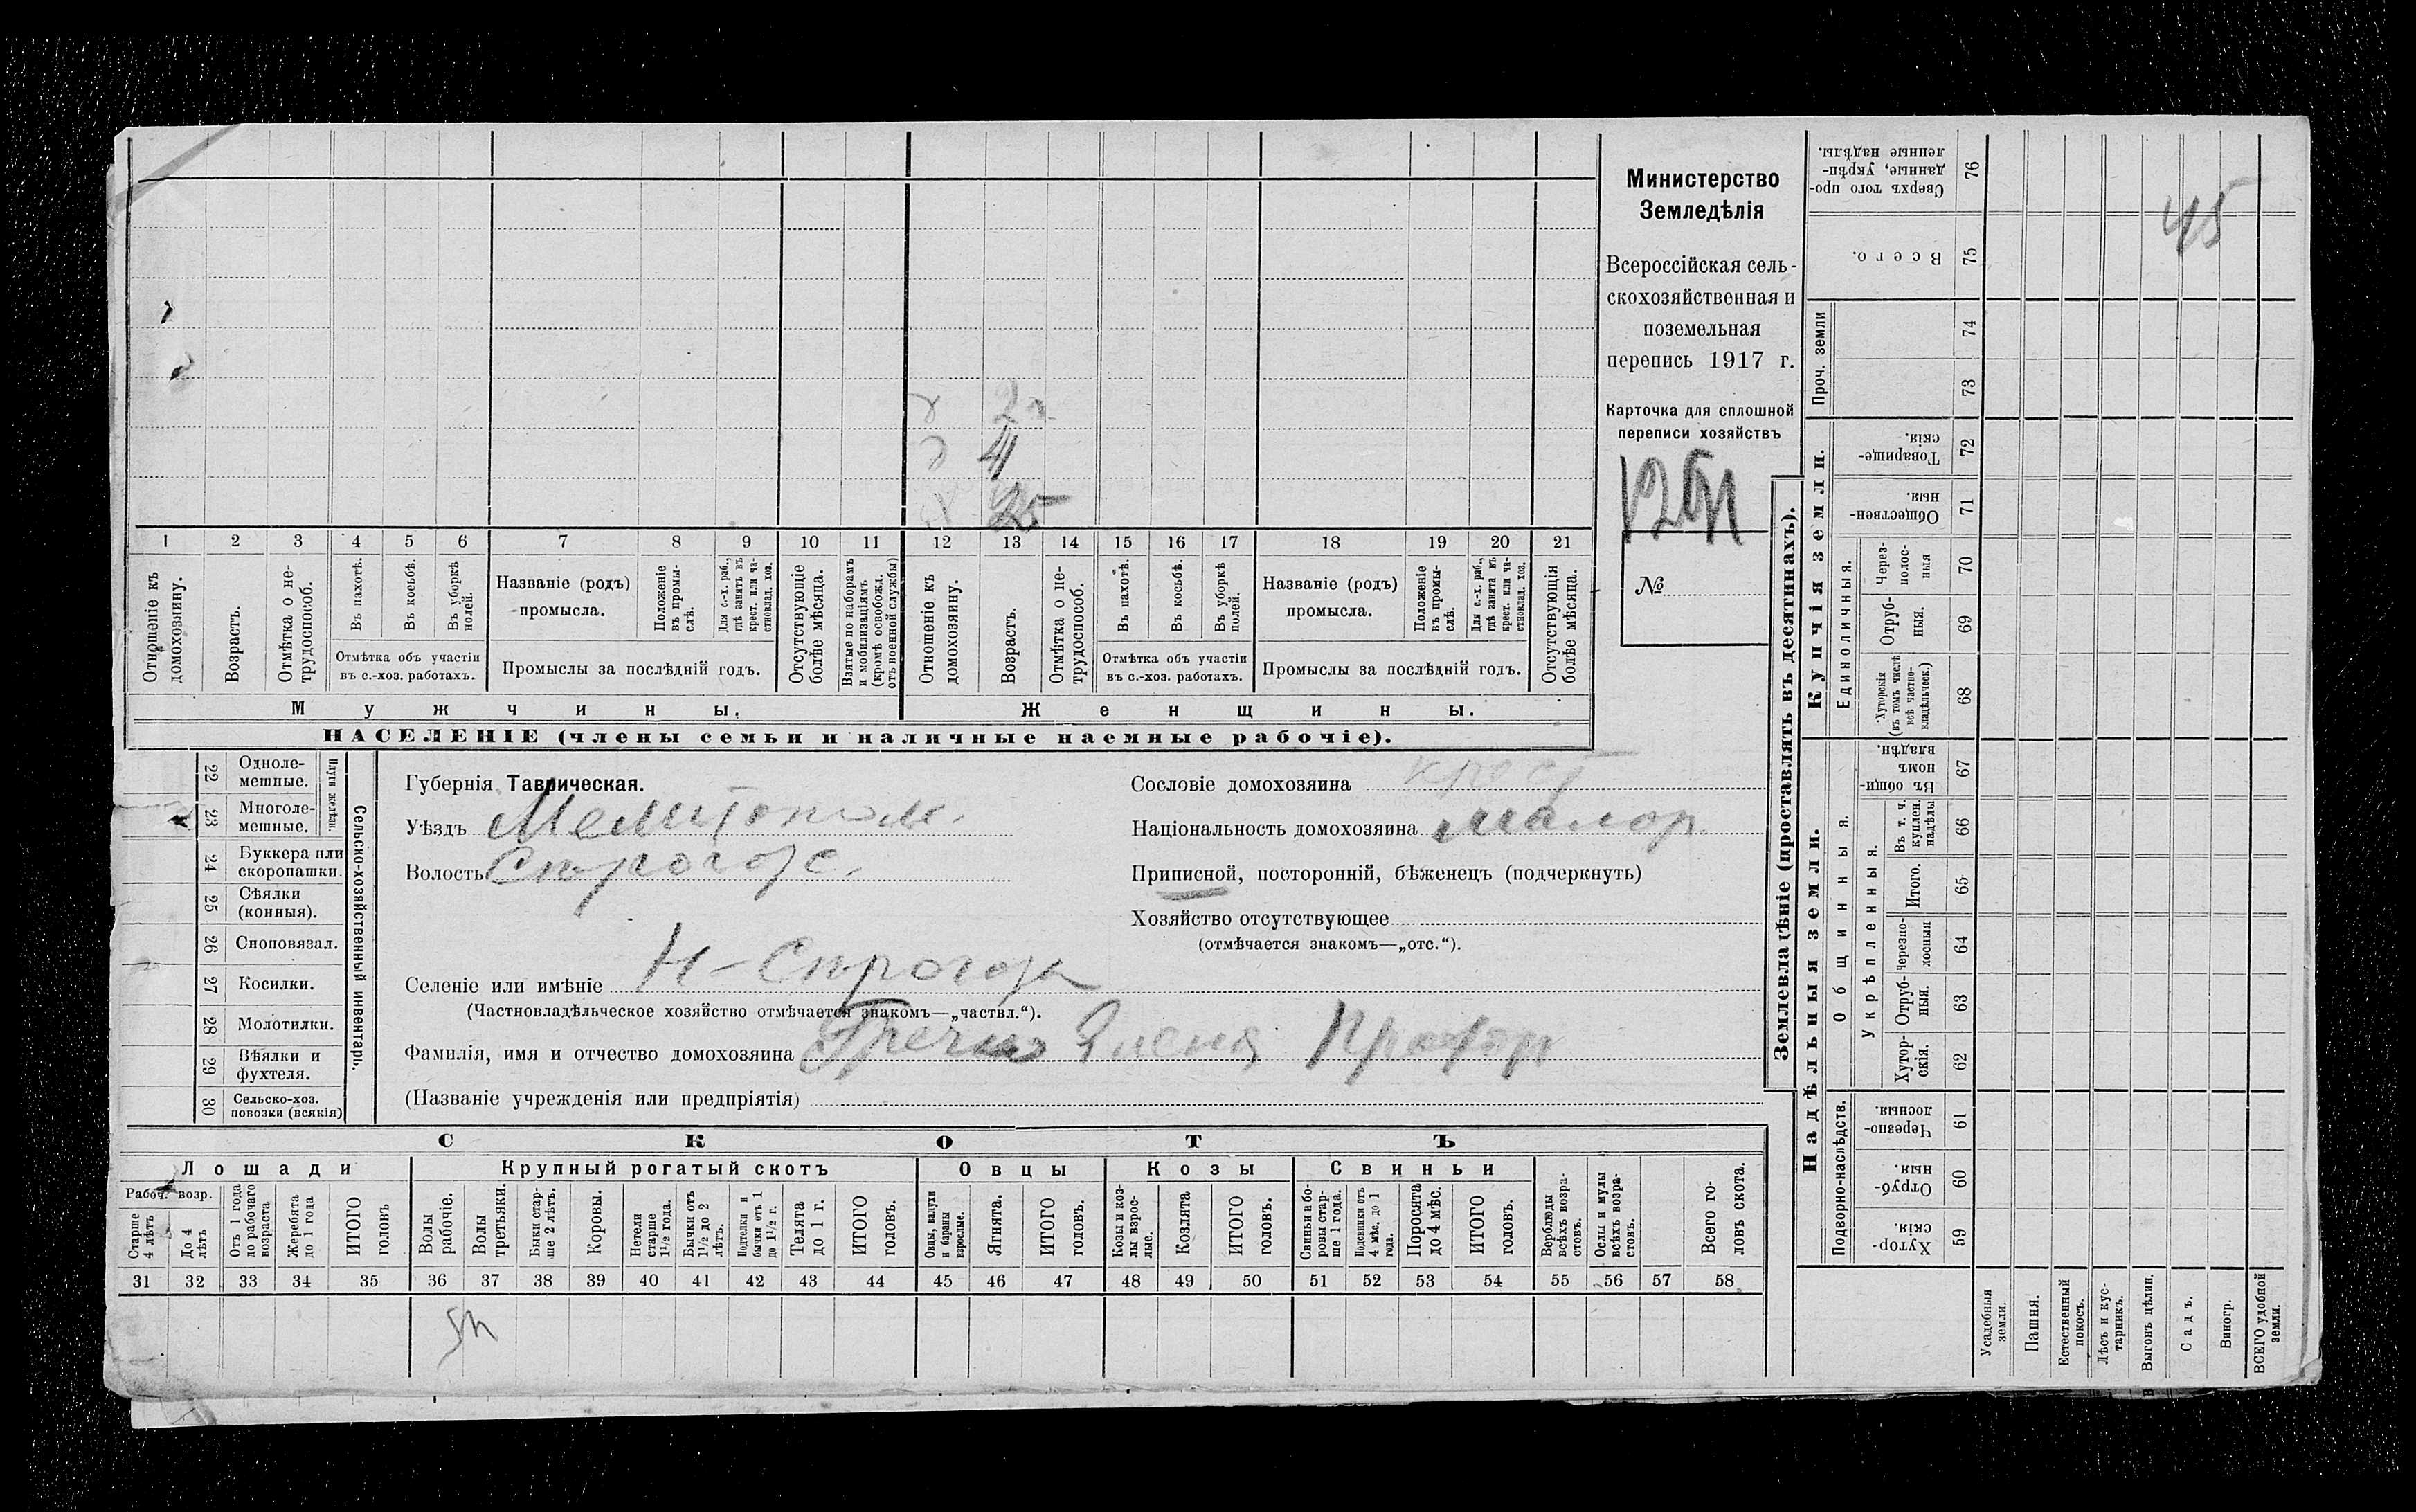 Министерство
Земледѣлія
Всероссійская сель-
скохозяйственная и
поземельная
перепись 1917 г.
Карточка для сплошной
переписи хозяйствъ
№
1 2 3 4 5 6 7 8 9 10 11 12 13 14 15 16 17 18 19 20 21
Отношеніе къ домохозяину.
Возрастъ.
Отмѣтка о не-трудоспособ.
Въ пахотѣ.
Въ косьбѣ.
Въ уборкѣ полей.
Отмѣтка объ участіи
въ с.-хоз. работахъ.
Названіе (родъ)
промысла.
Положеніе въ промы-слѣ.
Для с.-х. раб., гдѣ занятъ въ крест. или ча-стновлад. хоз.
Промыслы за послѣдній годъ.
Отсутствующіе болѣе мѣсяца.
Взятые по наборамъ и мобилизаціямъ (кромѣ освобожд. отъ военной службы)
Отношеніе къ домохозяину.
Возрастъ.
Отмѣтка о не-трудоспособ.
Въ пахотѣ.
Въ косьбѣ.
Въ уборкѣ полей.
Отмѣтка объ участіи
въ с.-хоз. работахъ.
Названіе (родъ)
промысла.
Положеніе въ промы-слѣ.
Для с.-х. раб., гдѣ занята въ крест. или ча-стновлад. хоз.
Промыслы за послѣдній годъ.
Отсутствующія болѣе мѣсяца.
41
25
Мужчины.
Женщины.
НАСЕЛЕНІЕ (члены семьи и наличные наемные рабочіе).
22 Одноле-мешные.
23 Многоле-мешные.
Плуги желѣзн.
24 Буккера или скоропашки.
25 Сѣялки (конныя).
26 Сноповязал.
27 Косилки.
28 Молотилки.
29 Вѣялки и фухтеля.
30 Сельско-хоз. повозки (всякія)
Сельско-хозяйственный инвентарь.
Губернія Таврическая.
Уѣздъ Мелитопол.
Волость Сирогоз.
Селеніе или имѣніе Н-Сирогозы
(Частновладѣльческое хозяйство отмѣчается знакомъ—„частвл.“).
Фамилія, имя и отчество домохозяина Елена
(Названіе учрежденія или предпріятія)
Сословіе домохозяина крест
Національность домохозяина малор.
Приписной, посторонній, бѣженецъ (подчеркнуть)
Хозяйство отсутствующее
(отмѣчается знакомъ—„отс.“).
СКОТЪ
Лошади
Крупный рогатый скотъ
Овцы
Козы
Свиньи
Рабоч. возр.
Старше 4 лѣтъ
До 4 лѣтъ
Отъ 1 года до рабочаго возраста
Жеребята до 1 года
ИТОГО головъ
Волы рабочіе.
Волы третьяки.
Быки стар-ше 2 лѣтъ.
Коровы.
Нетели старше 1½ года.
Бычки отъ 1½ до 2 лѣтъ.
Подтелки и бычки отъ 1 до 1½ г.
Телята до 1 г.
ИТОГО головъ.
Овцы, валухи и бараны взрослые.
Ягнята.
ИТОГО головъ.
Козы и коз-лы взрос-лые.
Козлята
ИТОГО головъ.
Свиньи и бо-ровы стар-ше 1 года.
Подсвинки отъ 4 мѣс. до 1 года.
Поросята до 4 мѣс.
ИТОГО головъ.
Верблюды всѣхъ возра-стовъ.
Ослы и мулы всѣхъ возра-стовъ.
Всего го-ловъ скота.
31 32 33 34 35 36 37 38 39 40 41 42 43 44 45 46 47 48 49 50 51 52 53 54 55 56 57 58
Землевладѣніе (проставлять въ десятинахъ).
Надѣльныя земли.
Купчія земли.
Проч. земли
Подворно-наслѣдств.
Общинныя.
Укрѣпленныя.
Единоличныя.
Хутор-скія. 59
Отруб-ныя. 60
Черезпо-лосныя. 61
Хутор-скія. 62
Отруб-ныя. 63
Черезпо-лосныя 64
Итого. 65
Въ т. ч. куплен. надѣлы 66
Въ общи-номъ владѣн. 67
Хуторскія (въ томъ числѣ всѣ частно-владѣльческ.) 68
Отруб-ныя. 69
Через-полос-ныя 70
Обществен-ныя. 71
Товарище-скія. 72
73
74
Всего. 75
Сверхъ того про-данные, укрѣп-ленные надѣлы. 76
45
Усадебныя земли.
Пашня.
Естественный покосъ.
Лѣсъ и кус-тарникъ.
Выгонъ цѣлин.
Садъ.
Виногр.
ВСЕГО удобной земли.